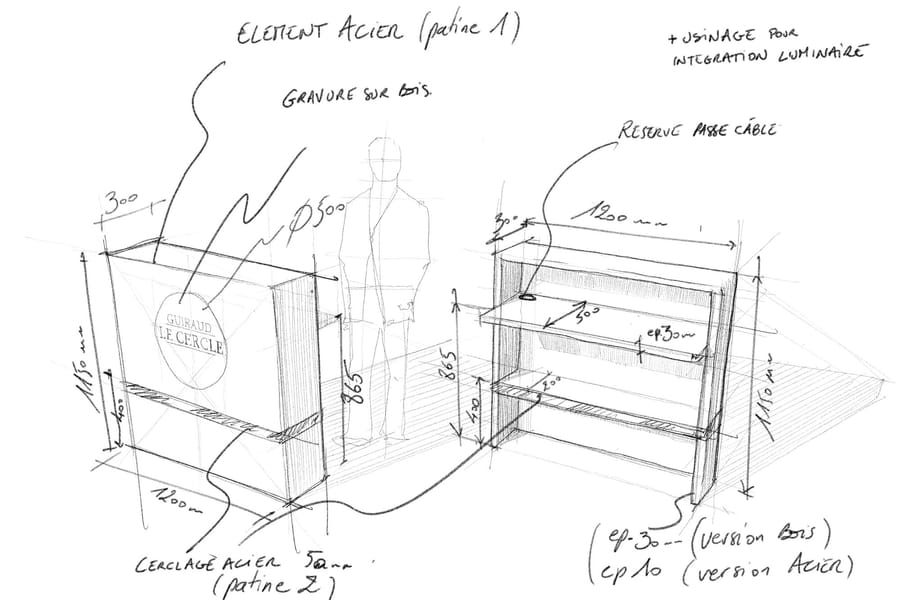 ELEMENT ACIER (patine 1)
+ USINAGE POUR
INTEGRATION LUMINAIRE
GRAVURE SUR BOIS.
RESERVE PASSE CÂBLE
300
Ø 500
GUIRAUD
LE CERCLE
1150 mm
400
865
1200 mm
300
1200 mm
500
ep 30 mm
865
400
200
1150 mm
CERCLAGE ACIER 50 mm
(patine 2)
(ep 30 mm (version Bois)
(ep 10 (version ACIER)